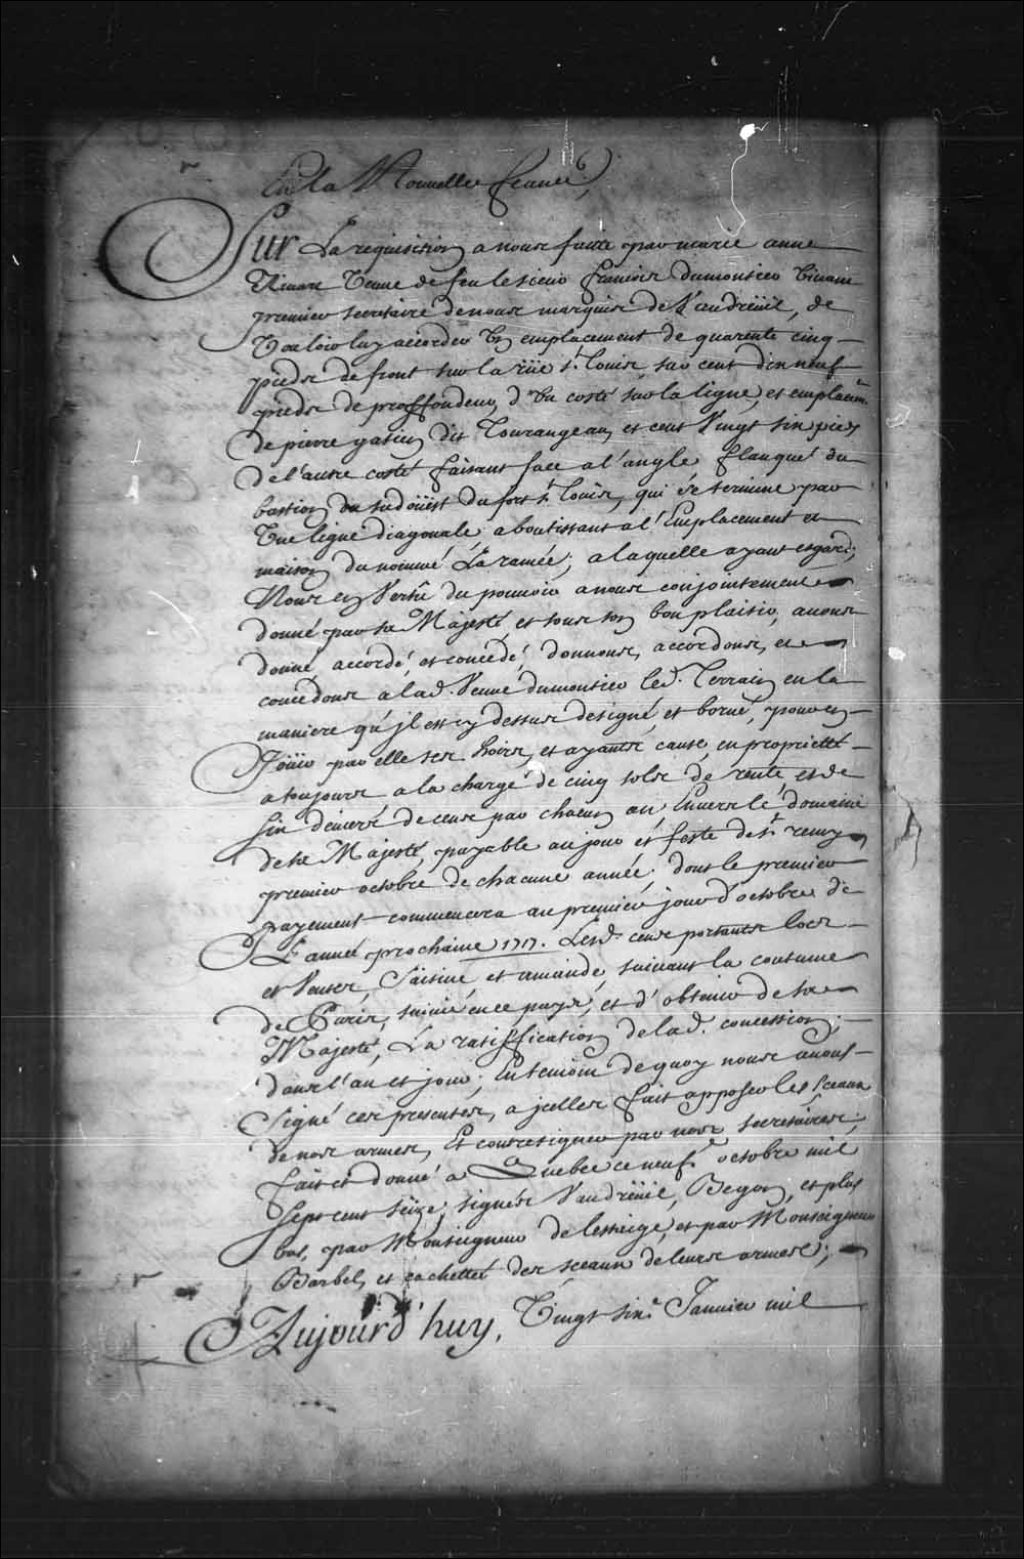 En la Nouvelle france,
Sur La requisition a nous faitte par marie anne
Veuve de feu le sieur francois dumontier vivant
premier secretaire de nous marquis de Vaudreüil, de
Vouloir luy accorder un emplacement de quarente cinq
pieds de front sur la rüe st. Louis, sur cent dix neuf
pieds de proffondeur, d'un costé sur la ligne, et emplacemt.
de pierre gatien dit Tourangeau, et cent Vingt six pieds
de l'autre costé faisant face a l'angle flanqué du
bastion du sudoüest du fort st. Loüis, qui se termine par
Une ligne diagonale, aboutissant a l'Emplacement et
maison du nommé La ramée; a laquelle ayant esgard;
Nous en Vertû du pouvoir a nous conjointement
donné par sa Majesté, et sous son bon plaisir, avons
donné, accordé, et concedé, donnons, accordons, et
concedons a lad. Veuve dumontier led. Terrain en la
maniere qu'jl est cy dessus designé, et borné, pour en
Joüir par elle ses hoirs, et ayants cause, en proprietté
a toujours a la charge de cinq sols de rente, et de
six deniers de cens par chacun an, Envers le domaine
de sa Majesté, payable au jour et feste de st. remy
premier octobre de chacune année, dont le premier
payement commencera au premier jour d'octobre de
L'année prochaine 1717. Lesd. cens portants lods
et Ventes, Saisine, et amande, suivant la coutume
de Paris, suivie en ce pays, et d'obtenir de sa
Majesté, La ratiffication de lad. concession,
dans l'an et jour; En temoin de quoy nous avons
signé ces presentes, a jcelles fait apposer les sceaux
de nos armes, Et contresigner par nos secretaires;
fait et donné a Quebec ce neufe. octobre mil
sept cent seize, signés Vaudreüil, Begon, et plus
bas, par Monseigneur de lesseige, et par Monseigneur
Barbel, et cachetté des sceaux de leurs armes;
Aujourd'huy, Vingt sixe. Janvier mil